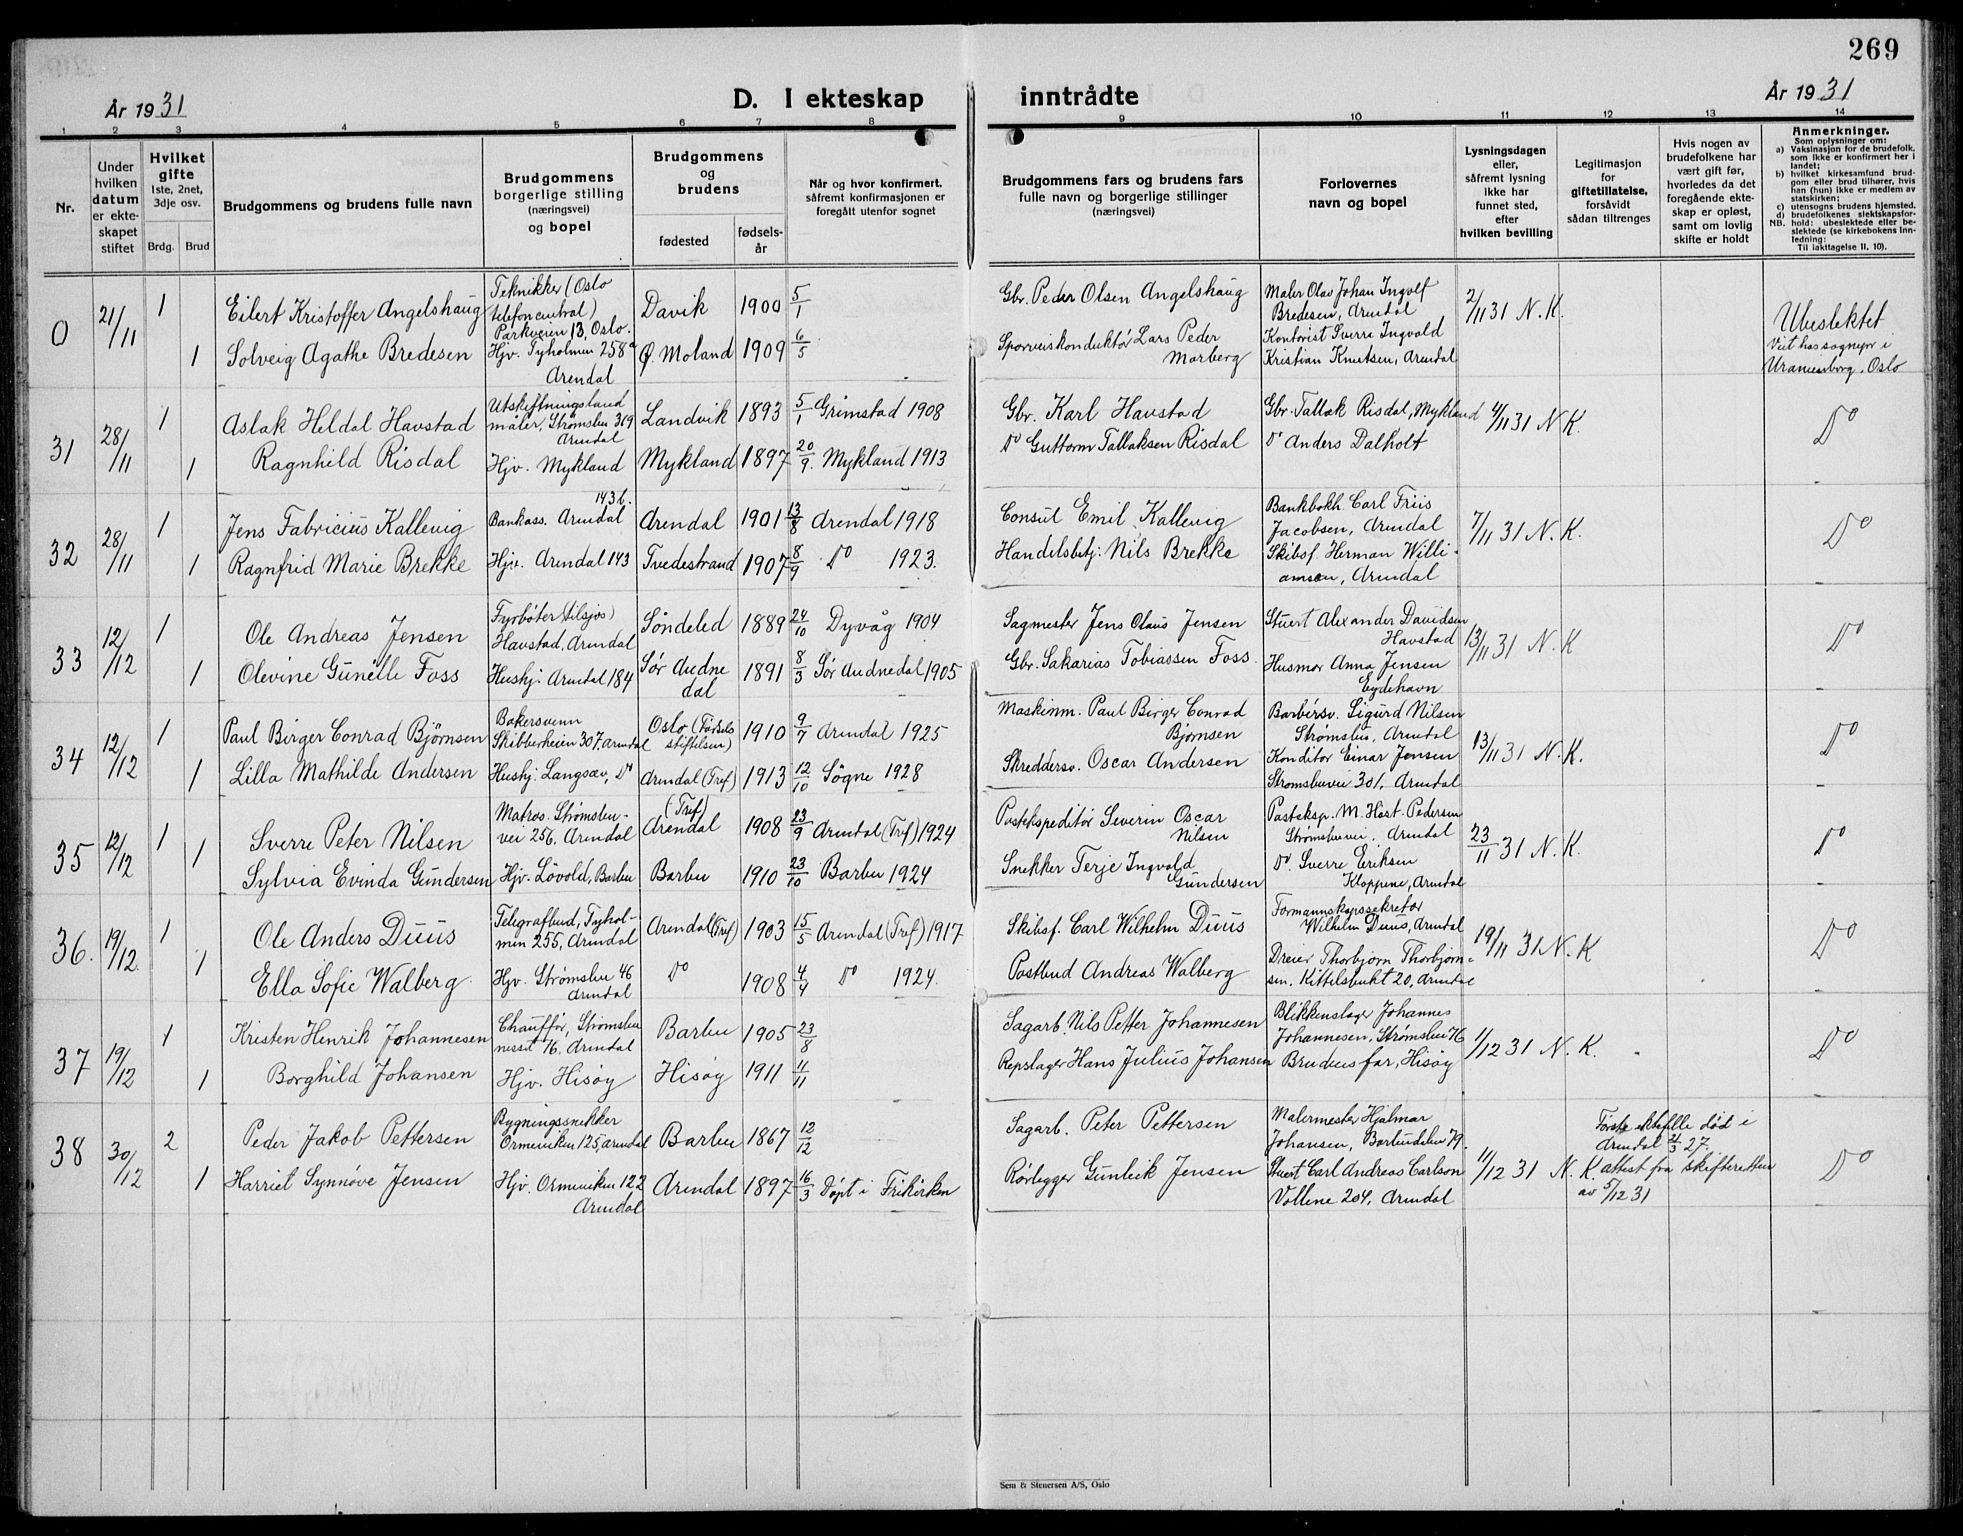 269
År 1931
D. I ekteskap
inntrådte
År 1931
1 2 3 4 5 6 7 8 9 10 11 12 13 14
Nr.
Under
hvilken
datum
er ekte-
skapet
stiftet
Hvilket
gifte
1ste, 2net,
3dje osv.
Brdg. Brud
Brudgommens og brudens fulle navn
Brudgommens
borgerlige stilling
(næringsvei)
og bopel
Brudgommens
og
brudens
fødested
fødsels-
år
Når og hvor konfirmert.
såfremt konfirmasjonen er
foregått utenfor sognet
Brudgommens fars og brudens fars
fulle navn og borgerlige stillinger
(næringsvei)
Forlovernes
navn og bopel
Lysningsdagen
eller,
såfremt lysning
ikke har
funnet sted,
efter
hvilken bevilling
Legitimasjon
for
giftetillatelse,
forsåvidt
sådan tiltrenges
Hvis nogen av
brudefolkene har
vært gift før,
hvorledes da det
foregående ekte-
skap er opløst,
samt om lovlig
skifte er holdt
Anmerkninger.
Som oplysninger om:
a) Vaksinasjon for de brudefolk,
som ikke er konfirmert her i
landet;
b) hvilket kirkesamfund brud-
gom eller brud tilhører, hvis
han (hun) ikke er medlem av
statskirken;
c) utensogns brudens hjemsted.
d) brudefolkenes slektskapsfor-
NB. hold: ubeslektede eller be-
slektede (se kirkebokens Inn-
ledning:
Til iakttagelse II, 10).
0 21/11 1 Eilert Kristoffer Angelshaug
Teknikker (Oslo
telefoncentral)
Parkveien 13, Oslo.
Davik 1900 5/1
Gbr. Peder Olsen Angelshaug
Maler Olav Johan Ingolf
Bredesen, Arendal
2/11 31 N. K.
Ubeslektet
Viet hos sognepr i
Uranienborg, Oslo
1 Solveig Agathe Bredesen
Hjv. Tyholmen 258a
Arendal
Ø. Moland 1909 6/5
Sporveiskonduktør Lars Peder
Marberg
Kontorist Sverre Ingvald
Kristian Knutsen, Arendal
31 28/11 1 Aslak Heldal Havstad
Utskiftningsland
måler, Strømsbu 319
Arendal
Landvik 1893 5/1 Grimstad 1908
Gbr. Karl Havstad
Gbr. Tallak Risdal, Mykland
4/11 31 N. K.
Do
1 Ragnhild Risdal
Hjv. Mykland
Mykland 1897 20/9 Mykland 1913
Do Guttorm Tallaksen Risdal
Do Anders Dalholt
32 28/11 1 Jens Fabricius Kallevig
143 b.
Bankass. Arendal
Arendal 1901 13/8 Arendal 1918
Consul Emil Kallevig
Bankbokh. Carl Friis
Jacobsen, Arendal
7/11 31 N. K.
Do
1 Ragnfrid Marie Brekke
Hjv. Arendal 143
Tvedestrand 1907 8/9 Do 1923.
Handelsbetj. Nils Brekke
Skibsf. Herman Willi-
amsen, Arendal
33 12/12 1 Ole Andreas Jensen
Fyrbøter (tilsjøs)
Havstad, Arendal
Søndeled 1889 24/10 Dyvåg 1904
Sagmester Jens Olaus Jensen
Stuert Alexander Davidsen
Havstad
13/11 31 N. K
Do
1 Olevine Gunelle Foss
Hushj. Arendal 184
Sør Audne
dal
1891 8/3 Sør Audnedal 1905
Gbr. Sakarias Tobiassen Foss
Husmor Anna Jensen
Eydehavn
34 12/12 1 Paul Birger Conrad Bjørnsen
Bakersvenn
Skibberheien 307, Arendal
Oslo (Fødsels
stiftelsen)
1910 9/7 Arendal 1925
Maskinm. Paul Birger Conrad
Bjørnsen
Barbersv. Sigurd Nilsen
Strømsbu, Arendal
13/11 31 N. K.
Do
1 Lilla Mathilde Andersen
Hushj. Langsæv, Do
Arendal (Tref) 1913 12/10 Søgne 1928
Skreddersv. Oscar Andersen
Konditor Einar Jensen
Strømsbuvei 301. Arendal
35 12/12 1 Sverre Peter Nilsen
Matros. Strømsbu-
vei 256, Arendal
(Tref)
Arendal 1908 23/9 Arendal (Tref) 1924
Postekspeditør Severin Oscar
Nilsen
Posteksp. M. Hast. Pedersen
Strømsbuvei, Arendal
23/11 31 N. K.
Do
1 Sylvia Evinda Gundersen
Hjv. Løvold, Barbu
Barbu 1910 23/10 Barbu 1924
Snekker Terje Ingvald
Gundersen
Do Sverre Eriksen
Kloppene, Arendal
36. 19/12. 1 Ole Anders Duus
Telegrafbud, Tyhol-
men 255, Arendal
Arendal (Tref) 1903 15/5 Arendal (Tref) 1917
Skibsf. Carl Wilhelm Duus
Formannskapssekretær
Wilhelm Duus, Arendal
19/11 31 N. K
Do
1 Ella Sofie Walberg.
Hjv. Strømsbu 46
Arendal
Do 1908 4/4 Do 1924.
Postbud Andreas Walberg
Dreier Thorbjørn Thorbjørn-
sen. Kittelsbukt 20, Arendal
37 19/12 1 Kristen Henrik Johannesen
Chauffør, Strømsbu
nesset 76. Arendal
Barbu 1905 23/8
Sagarb. Nils Petter Johannesen
Blikkenslager Johannes
Johannesen, Strømsbu 76
1/12 31 N. K.
Do
1 Borghild Johansen
Hjv. Hisøy
Hisøy 1911 4/11
Repslager Hans Julius Johansen
Brudens far, Hisøy
38 30/12 2 Peder Jakob Pettersen
Bygningssnekker
Ormeviken 125, Arendal
Barbu 1867 12/12
Sagarb. Peter Pettersen
Malermester Hjalmar
Johansen, Barbudalen 79.
11/12 31 N. K.
Første ektefelle død i
Arendal 21/3 27.
attest fra skifteretten
av 5/12 31
Do
1 Harriet Synnøve Jensen
Hjv. Ormeviken 122
Arendal
Arendal 1897 16/3 Døpt i Frikirken
Rørlegger Gunleik Jensen
Stuert Carl Andreas Carlson
Vollene 204, Arendal
Sem & Stenersen A/S, Oslo